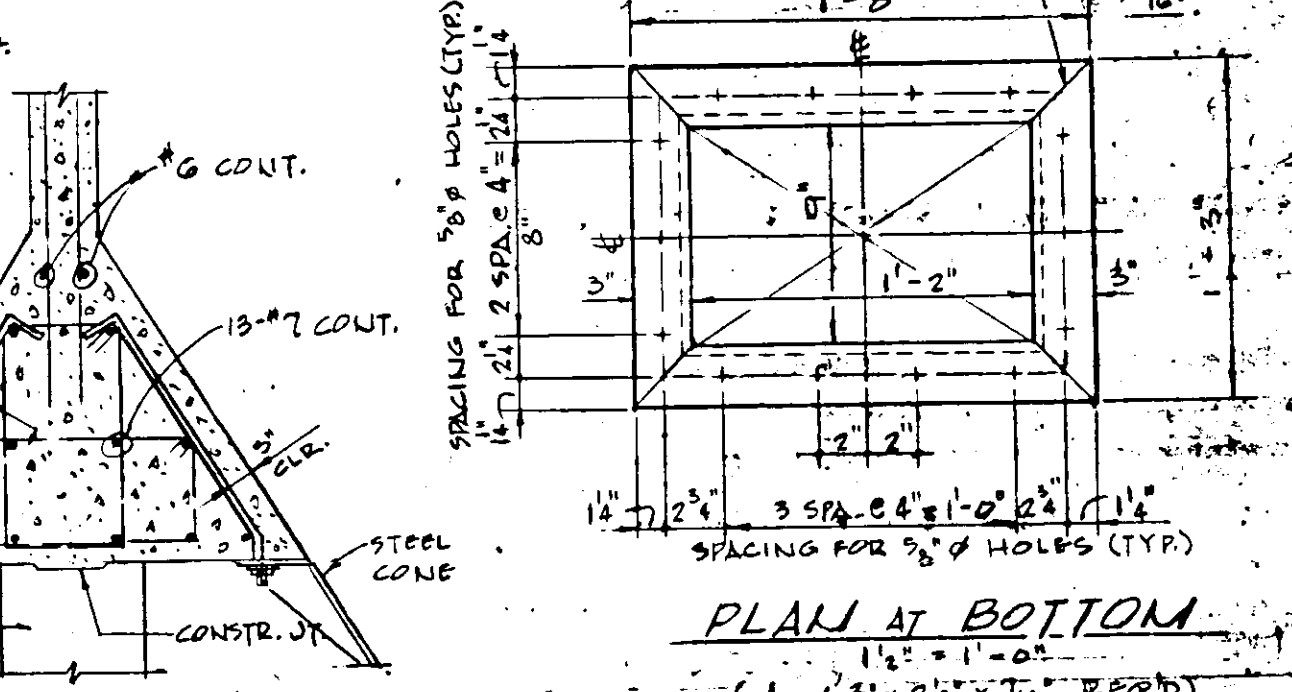 #6 CONT.
13-#7 CONT.
3" CLR.
STEEL
CONE
CONSTR. JT.
SPACING FOR 5/8" Ø HOLES (TYP.)
1 1/4"
2 1/4"
2 SPA. @ 4" =
8"
2 1/4"
1 1/4"
1'-8"
℄
9"
℄
3"
1'-2"
3"
1'-3"
2" 2"
1 1/4" 2 3/4" 3 SPA. @ 4" = 1'-0" 2 3/4" 1 1/4"
SPACING FOR 5/8" Ø HOLES (TYP.)
PLAN AT BOTTOM
1 1/2" = 1'-0"
REQ'D)